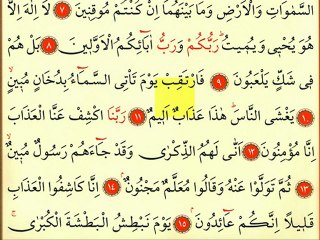 السَّمٰوَاتِ وَالْاَرْضِ وَمَا بَيْنَهُمَا اِنْ كُنْتُمْ مُوقِنٖينَ ﴿٧﴾ لَا اِلٰهَ اِلَّا
هُوَ يُحْيٖي وَيُمٖيتُ رَبُّكُمْ وَرَبُّ اٰبَائِكُمُ الْاَوَّلٖينَ ﴿٨﴾ بَلْ هُمْ
فٖي شَكٍّ يَلْعَبُونَ ﴿٩﴾ فَارْتَقِبْ يَوْمَ تَأْتِي السَّمَاءُ بِدُخَانٍ مُبٖينٍ
﴿١٠﴾ يَغْشَى النَّاسَ هٰذَا عَذَابٌ اَلٖيمٌ ﴿١١﴾ رَبَّنَا اكْشِفْ عَنَّا الْعَذَابَ
اِنَّا مُؤْمِنُونَ ﴿١٢﴾ اَنّٰى لَهُمُ الذِّكْرٰى وَقَدْ جَاءَهُمْ رَسُولٌ مُبٖينٌ
﴿١٣﴾ ثُمَّ تَوَلَّوْا عَنْهُ وَقَالُوا مُعَلَّمٌ مَجْنُونٌ ﴿١٤﴾ اِنَّا كَاشِفُوا الْعَذَابِ
قَلٖيلًا اِنَّكُمْ عَائِدُونَ ﴿١٥﴾ يَوْمَ نَبْطِشُ الْبَطْشَةَ الْكُبْرٰى